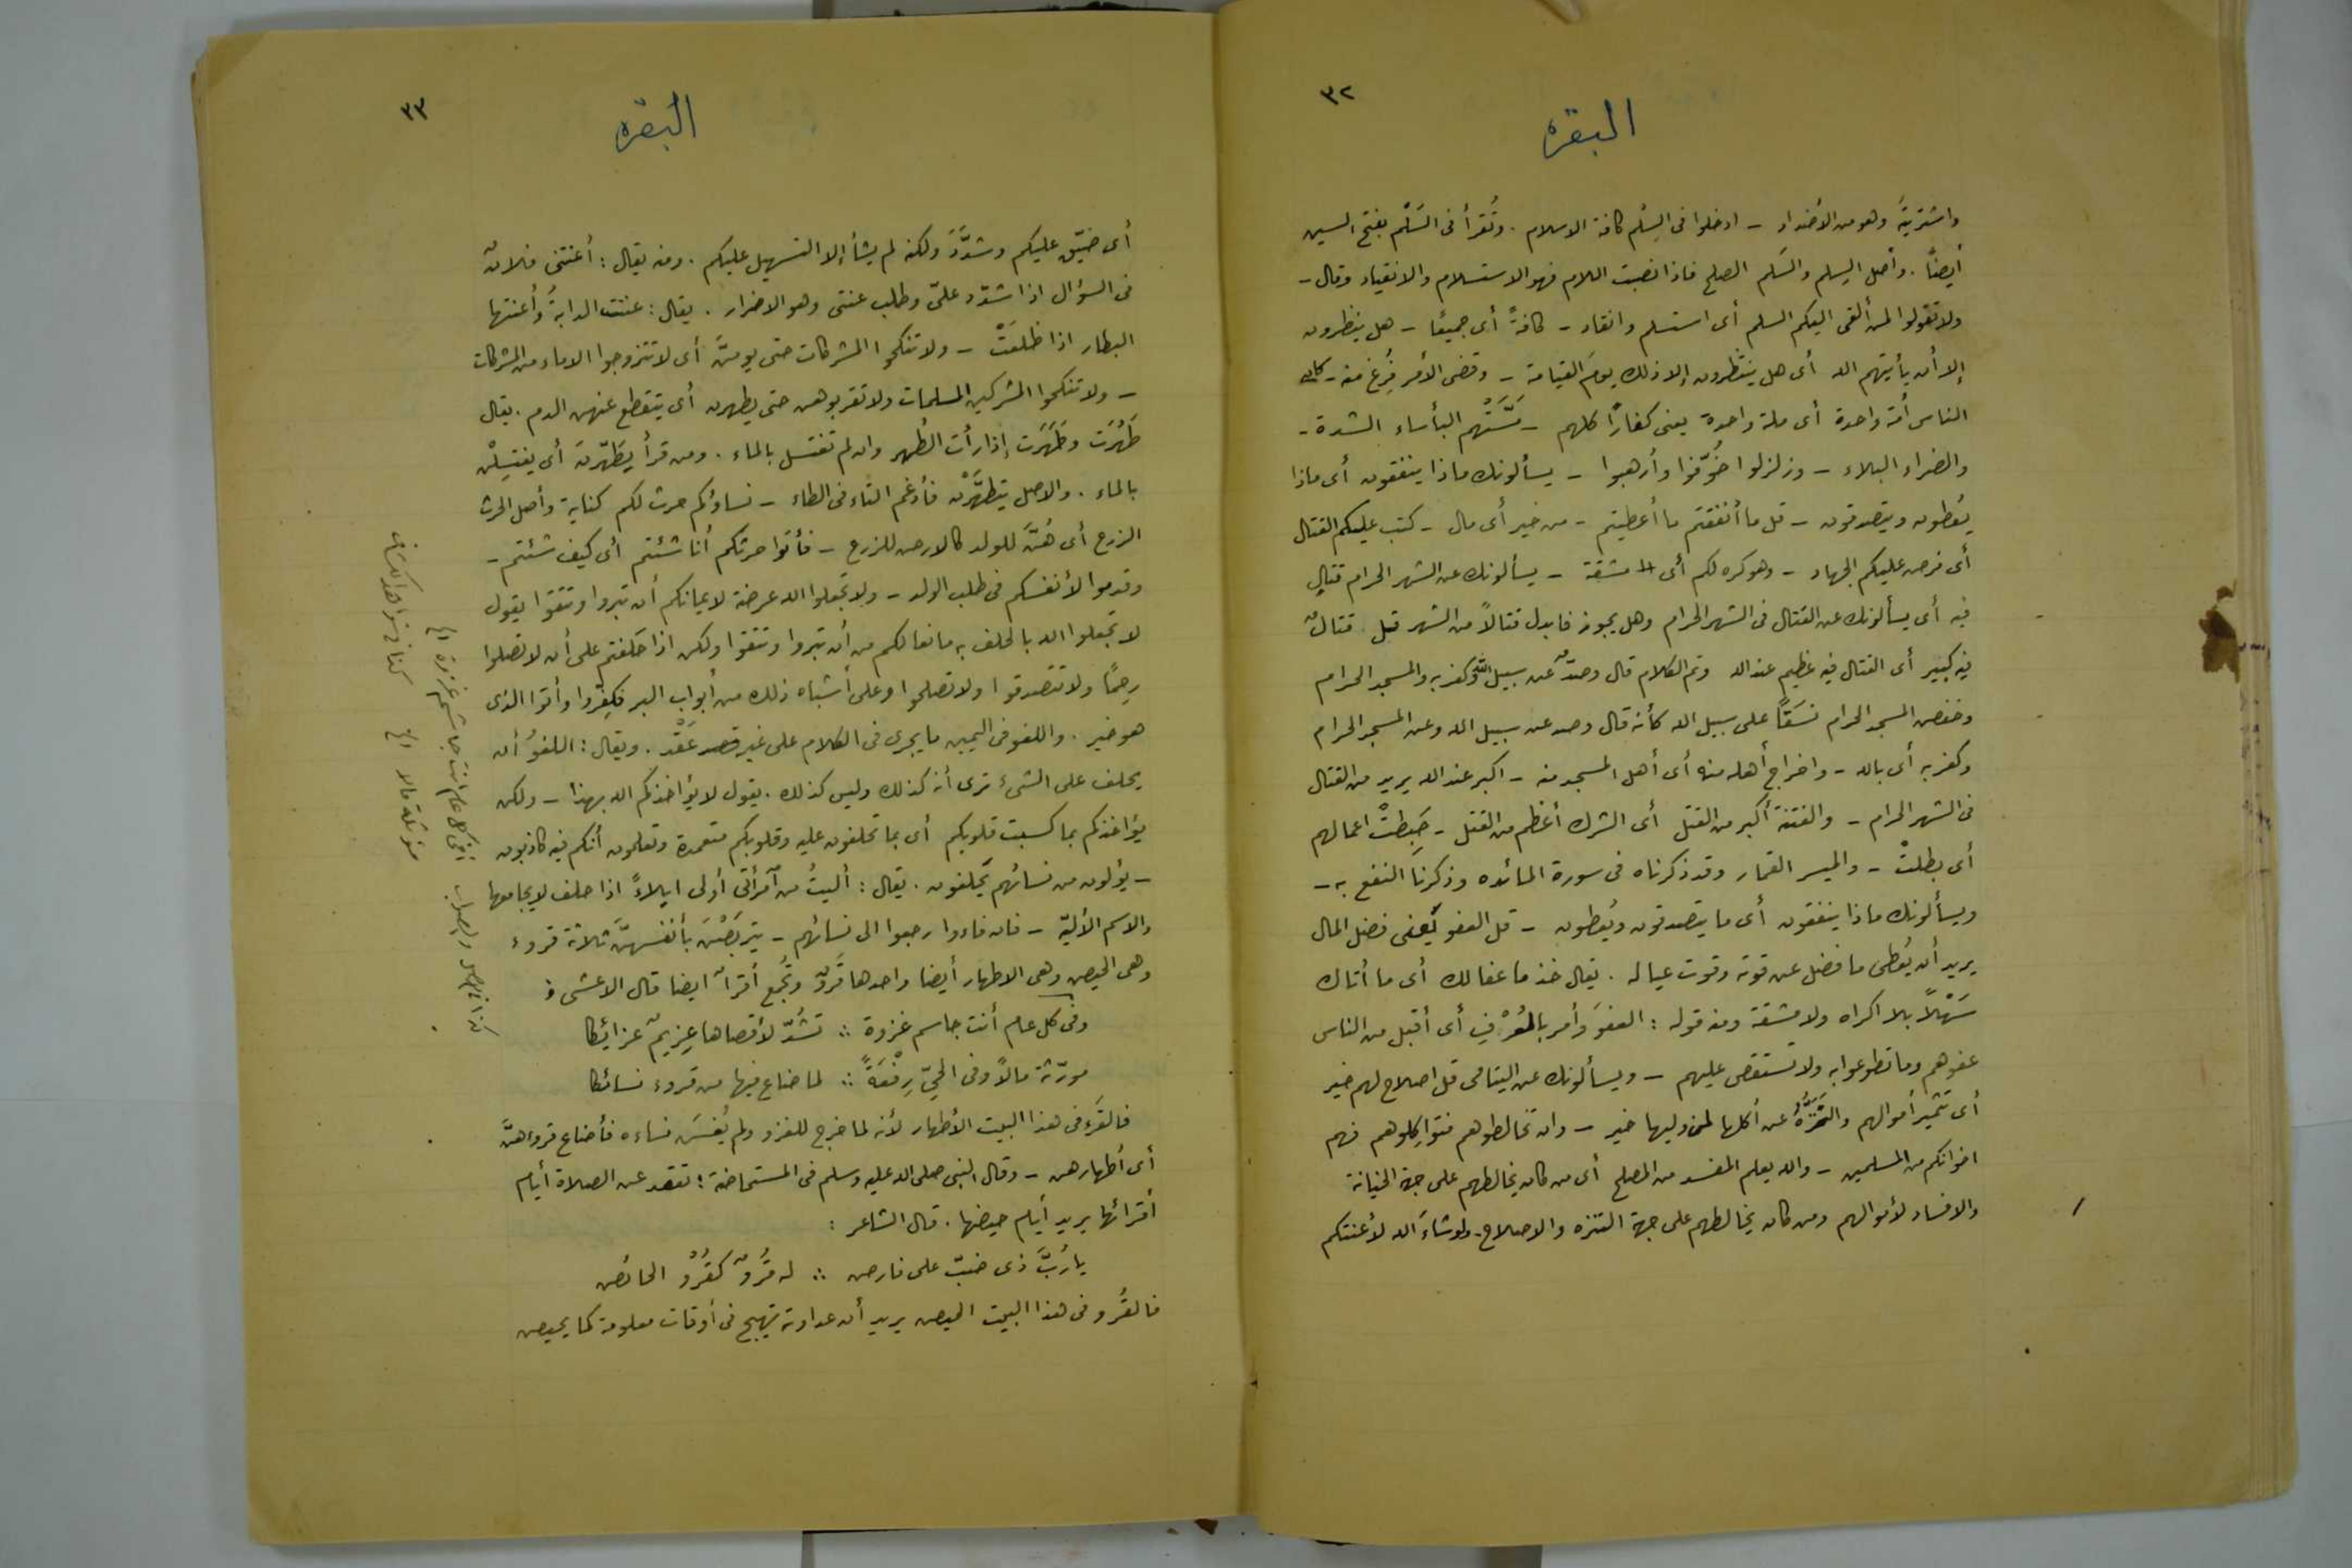 ٣٢
البقرة
واشتريةً وهو من الأضداد - ادخلوا فى السِلْم كافة الاسلام . وتُقرأ فى السَلْم بفتح السين
أيضًا . وأصل السِلم والسَلم الصلح فاذا نصبت اللام فهو الاستسلام والانقياد وقال -
ولا تقولوا لمن ألقى اليكم السلم أى استسلم وانقاد - كافةً أى جميعًا - هل ينظرون
إلا أن يأتيهم الله أى هل ينتظرون إلا ذلك يوم القيامة - وقضى الأمر فُرِغ منه - كان
الناس أمة واحدة أى ملة واحدة يعنى كفارًا كلهم - مَسَّتْهم البأساء الشدة -
والضراء البلاء - وزلزلوا خُوِّفوا وأرهبوا - يسألونك ماذا ينفقون أى ماذا
يُعطون ويتصدقون - قل ما أنفقتم ما أعطيتم - من خير أى مال - كتب عليكم القتال
أى فرض عليكم الجهاد - وهو كره لكم أى مشقة - يسألونك عن الشهر الحرام قتالٍ
فيه أى يسألونك عن القتال فى الشهر الحرام وهل يجوز فابدل قتالاً من الشهر قل قتالٌ
فيه كبير أى القتال فيه عظيم عند الله وتم الكلام قال وصدٌّ عن سبيل الله وكفر به والمسجد الحرام
وخفض المسجد الحرام نسَقًا على سبيل الله كأنه قال وصد عن سبيل الله وعن المسجد الحرام
وكفر به أى بالله - واخراج أهله منه أى أهل المسجد منه - اكبر عند الله يريد من القتال
فى الشهر الحرام - والفتنة أكبر من القتل أى الشرك أعظم من القتل - حَبِطتْ اعمالهم
أى بطلتْ - والميسر القمار وقد ذكرناه فى سورة المائده وذكرنا النفع به -
ويسألونك ماذا ينفقون أى ما يتصدقون ويُعطون - قل العفو يَعنى فضل المال
يريد أن يُعطى ما فضل عن قوته وقوت عياله . يقال خذ ما عفا لك أى ما أتاك
سَهْلاً بلا اكراه ولا مشقة ومنه قوله : العفوَ وأمر بالعُرْفِ أى أقبل من الناس
عفوهم وما تطوعوا به ولا تستقص عليهم - ويسألونك عن اليتامى قل اصلاح لهم خير
أى تثمير أموالهم والتَّنَزُّهُ عن أكلها لمن وليها خير - وان تخالطوهم فتواكِلوهم فهم
اخوانكم من المسلمين - والله يعلم المفسد من المصلح أى من كان يخالطهم على جهة الخيانة
والافساد لأموالهم ومن كان يخالطهم على جهة التنزه والاصلاح - ولو شاءَ الله لأعنتكم
٣٣
البقره
أى ضيّق عليكم وشدَّدَ ولكنه لم يشأ إلا التسهيل عليكم . ومنه يقال : أعنتنى فلانٌ
فى السؤال اذا شدّد علىّ وطلب عنتى وهو الاضرار . يقال : عنتت الدابةُ وأعنتها
البطار اذا ظلَعَتْ - ولا تنكحوا المشركات حتى يومنَّ أى لا تتزوجوا الاماء من المشركات
- ولا تنكحوا المشركين المسلمات ولا تقربوهن حتى يطهرن أى ينقطع عنهن الدم . يقال
طَهُرَت وطَهَرَت إذا رأت الطُهر وان لم تغتسل بالماء . ومن قرأ يَطّهّرنَ أى يغتسِلْن
بالماء . والاصل يتطهَّرْن فأدغم التاء فى الطاء - نساؤكم حرث لكم كناية وأصل الحرث
الزرع أى هُنَّ للولد كالارض للزرع - فأتوا حرثكم أنا شئتم أى كيف شئتم -
وقدموا لأنفسكم فى طلب الولد - ولا تجعلوا الله عرضة لايمانكم أن تبروا وتتقوا يقول
لا تجعلوا الله بالحلف به مانعا لكم من أن تبروا وتتقوا ولكن اذا حَلفتم على أن لا تصلوا
رحِمًا ولا تتصدقوا ولا تصلحوا وعلى أشباه ذلك من أبواب البر فكفِّروا وأتوا الذى
هو خير . واللغو فى اليمين ما يجرى فى الكلام على غير قصد عَقْد . ويقال : اللغوُ أن
يحلف على الشئ ترى أنه كذلك وليس كذلك . يقول لا يؤاخذكم الله بهذا - ولكن
يؤاخذكم بما كسبت قلوبكم أى بما تحلفون عليه وقلوبكم متعمدة وتعلمون أنكم فيه كاذبون
- يؤلون من نسائهم يَحلفون . يقال : أليتُ من آمرأتى أولى ايلاءً اذا حلف لا يجامعها
والاسم الأليّه - فان فاءوا رجعوا الى نسائهم - يتربَصْنَ بأنفسهنَّ ثلاثة قروء
وهى الحيض وهى الاطهار أيضا واحدها قَروٌ وتُجمع أقراءٌ ايضا قال الاعشى
وفى كل عام أنت جاسم غزوة ∴ تشُدّ لأقصاها عزيمٌ عزائكا
مورّثة مالاً وفى الحىّ رِفْعَةً ∴ لما ضاع فيها من قروء نسائكا
فالقرء فى هذا البيت الأطهار لأنه لما خرج للغزو ولم يُغسَ نساءه فأضاع قروءهنَّ
أى أطهارهن - وقال النبى صلى الله عليه وسلم فى المستحاضة : تقعد عن الصلاة أيام
أقرائها يريد أيام حيضها . قال الشاعر :
يا رُبَّ ذى ضبّ على فارض ∴ له قُرُوٌ كقُرُوْ الحائض
فالقُرو فى هذا البيت الحيض يريد أن عداوته تهيج فى أوقات معلومة كما يحيض
كذا فى الاصل والصواب أفى كل عام أنت جاشم غزوة الخ
مورثة مالا الخ كذا فى شواهد الكشاف